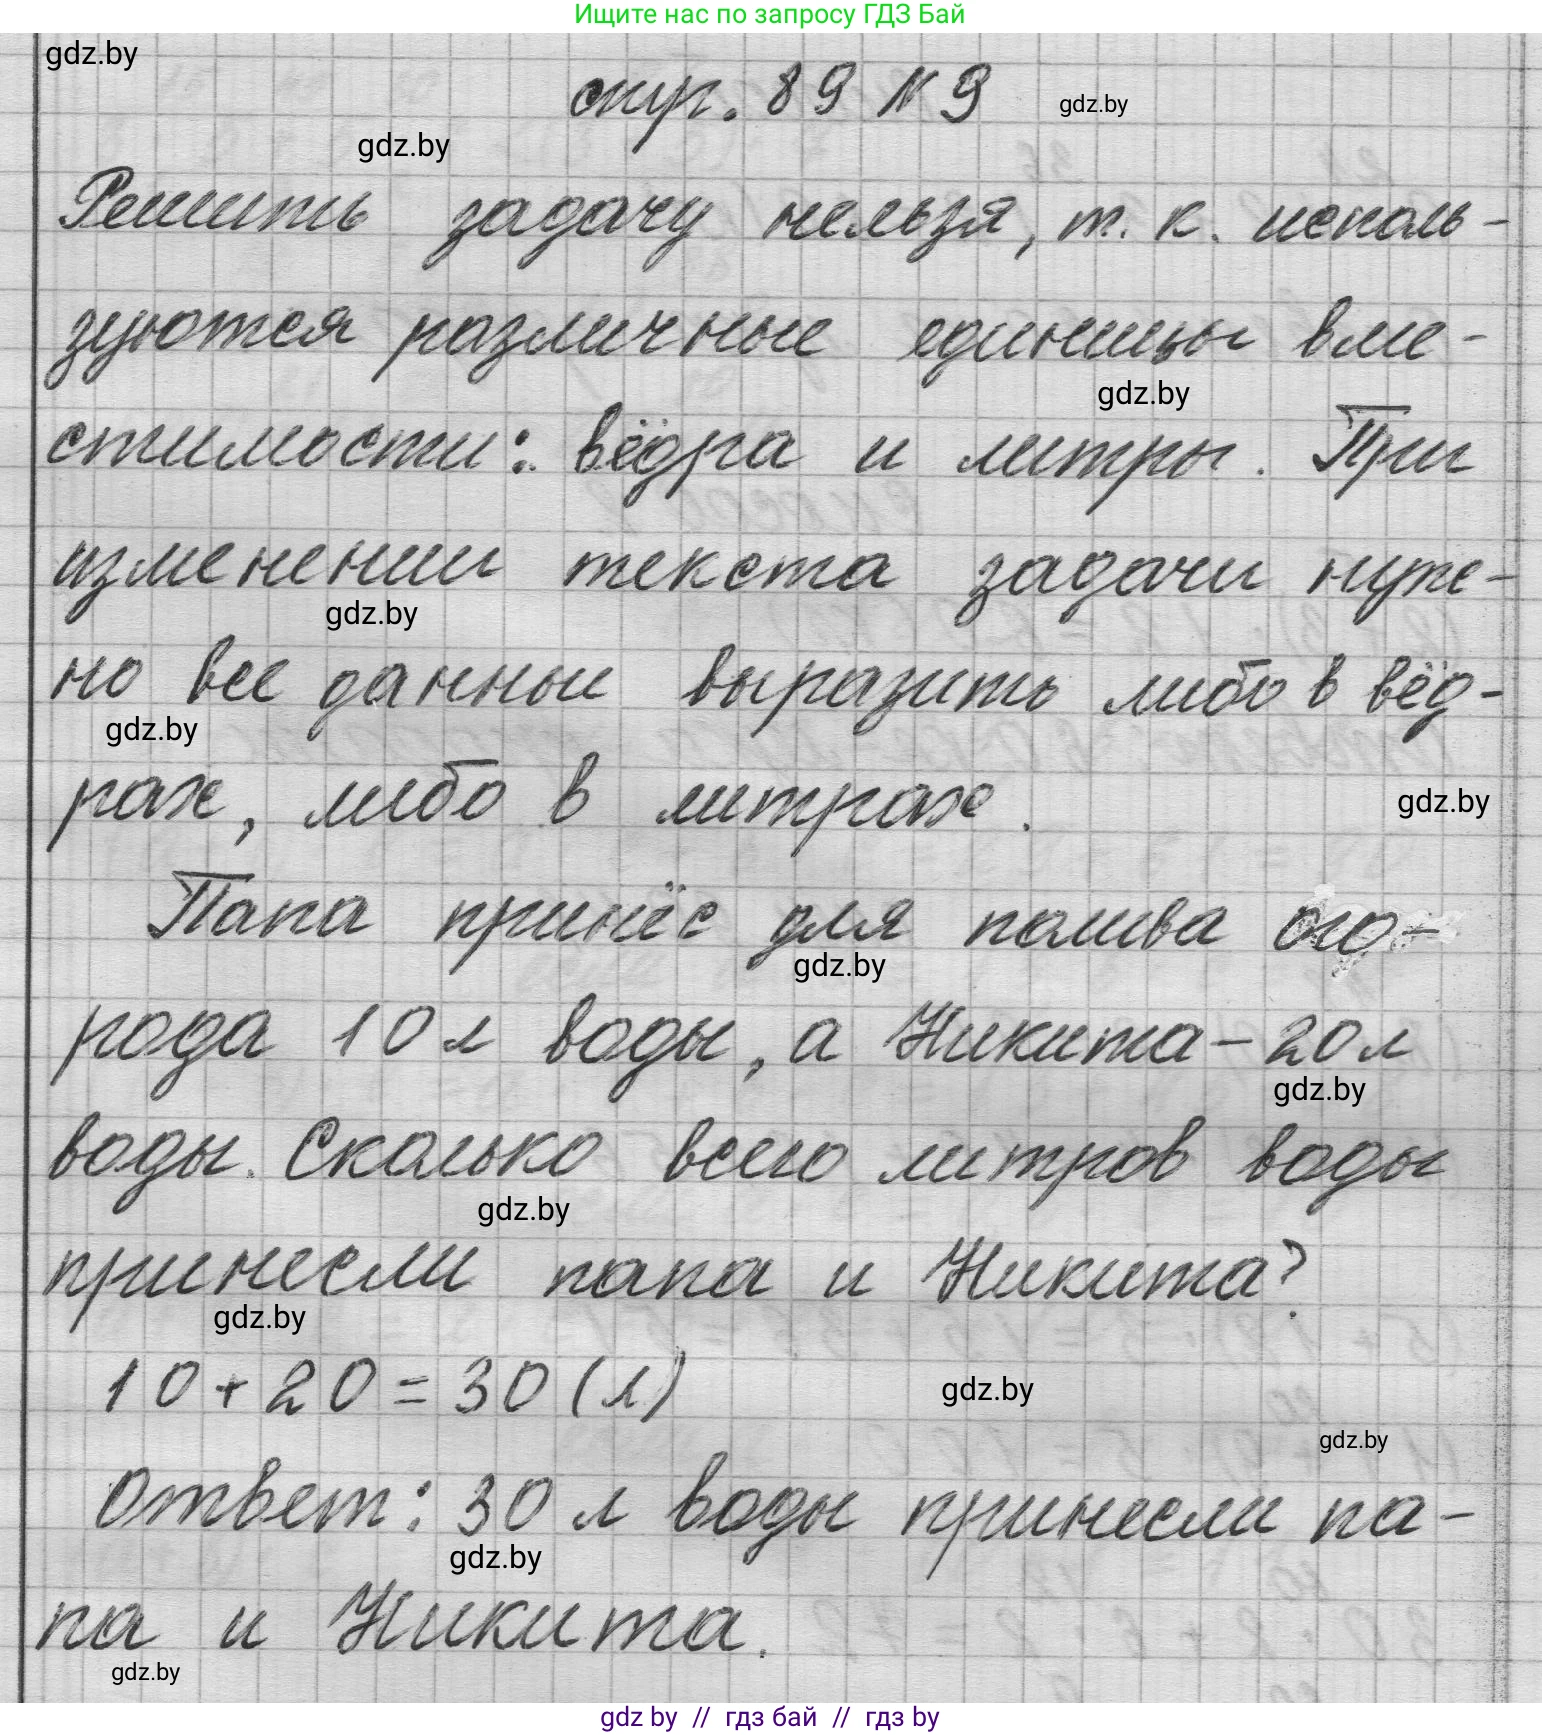 Ищите нас по запросу ГДЗ Бай
gdz.by
стр. 89 № 9
gdz.by
gdz.by
Решить задачу нельзя, т. к. исполь-
зуются различные единицы вме-
gdz.by
стимости: вёдра и литры. При
изменении текста задачи нуж-
gdz.by
но все данные выразить либо в вёд-
gdz.by
рах, либо в литрах.
gdz.by
Папа принёс для полива ого-
gdz.by
рода 10 л воды, а Никита - 20 л
gdz.by
воды. Сколько всего литров воды
gdz.by
принесли папа и Никита?
gdz.by
10 + 20 = 30 (л)
gdz.by
gdz.by
Ответ: 30 л воды принесли па-
gdz.by
па и Никита.
gdz.by
gdz by // гдз бай // гдз by